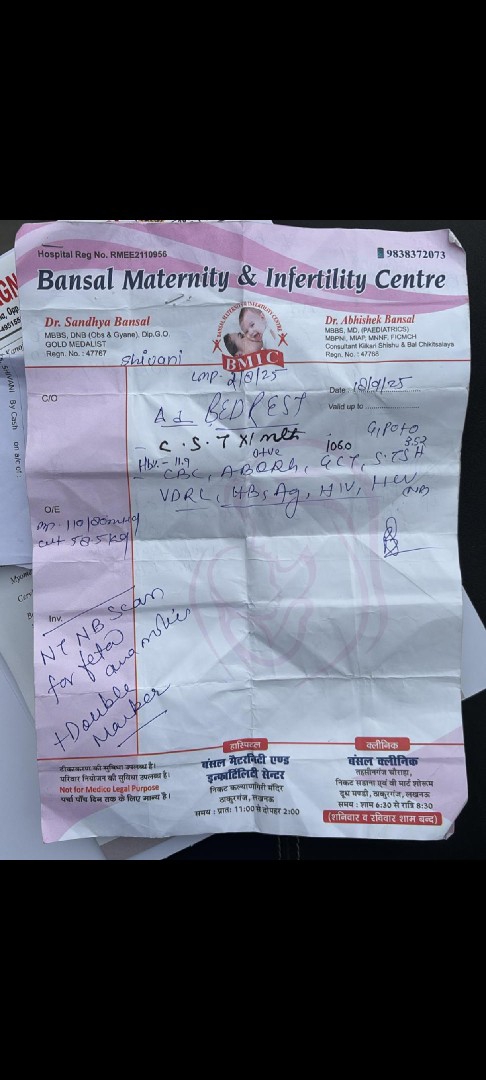 Hospital Reg No. RMEE2110956
9838372073
Bansal Maternity & Infertility Centre
Dr. Sandhya Bansal
MBBS, DNB (Obs & Gyane), Dip.G.O.
GOLD MEDALIST
Regn. No. : 47767
Dr. Abhishek Bansal
MBBS, MD, (PAEDIATRICS)
MBPNI, MIAP, MNNF, FIOMCH
Consultant Kilkari Shishu & Bal Chikitsalaya
Regn. No. : 47768
BMIC
Shivani
LMP-
Date :
Valid up to
C/O
Ad BEDREST
G1P0+0
C.S.T X1 mth
Hb.- 11.9
O+ve
106.0
3.52
CBC, ABORh, GCT, S.TSH
VDRL, HBsAg, HIV, HCV
(NR)
O/E
Inv.
NT NB Scan
for fetal
+ Double
Marker
टीकाकरण की सुविधा उपलब्ध है।
परिवार नियोजन की सुविधा उपलब्ध है।
Not for Medico Legal Purpose
पर्चा पाँच दिन तक के लिए मान्य है।
हास्पिटल
बंसल मैटरनिटी एण्ड
इन्फर्टिलिटी सेन्टर
निकट कल्याणगिरी मंदिर
ठाकुरगंज, लखनऊ
समय : प्रातः 11:00 से दोपहर 2:00
क्लीनिक
बंसल क्लीनिक
तहसीनगंज चौराहा,
दूध मण्डी, ठाकुरगंज, लखनऊ
समय : शाम 6:30 से रात्रि 8:30
(शनिवार व रविवार शाम बन्द)